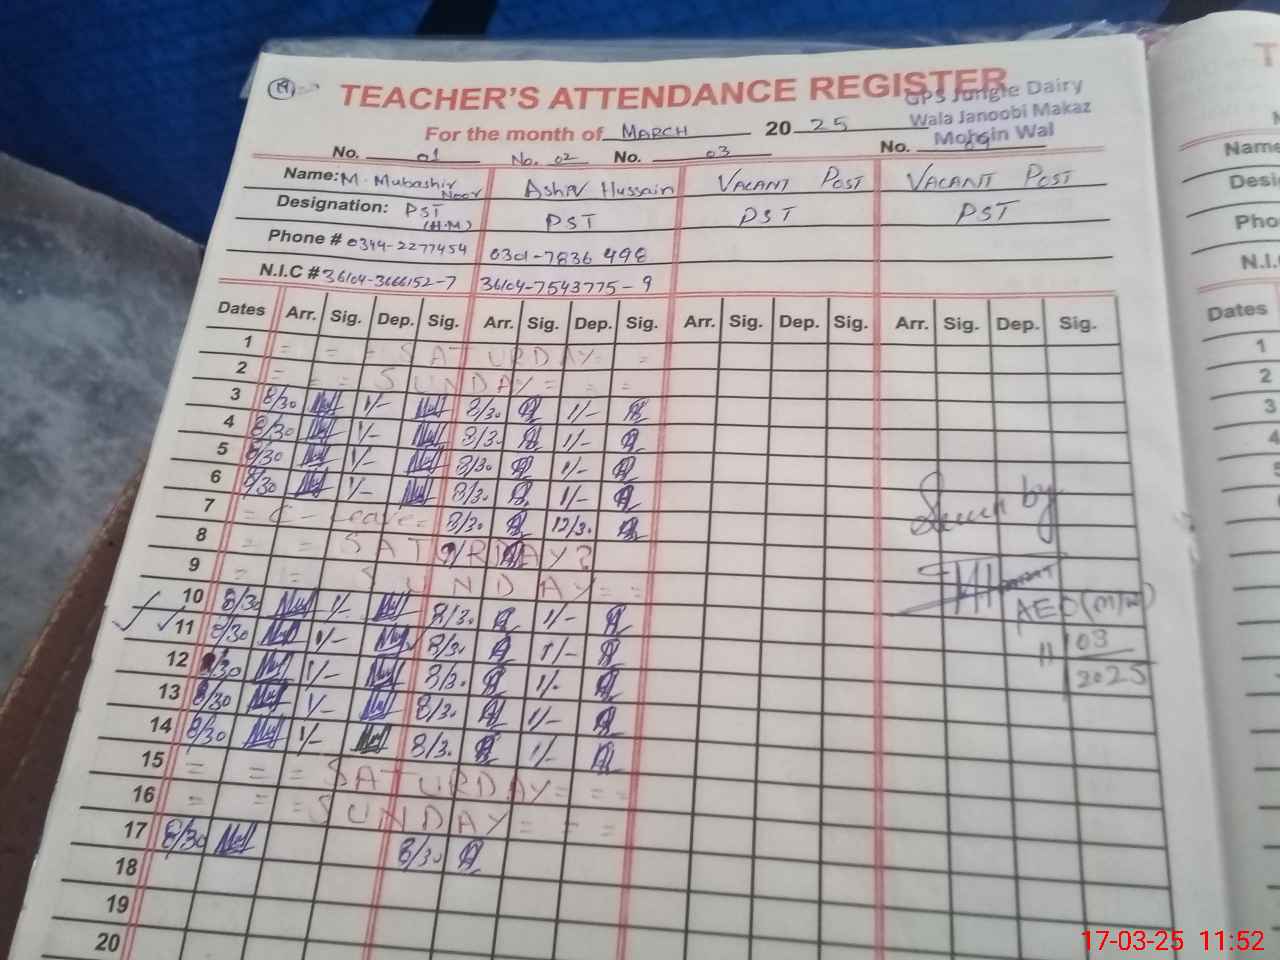 19
TEACHER'S ATTENDANCE REGISTER
GPS Jungle Dairy
Wala Janoobi Makaz
Mohsin Wal
For the month of MARCH 2025
No. 01 No. 02 No. 03 No.
Name: M. Mubashir Noor Ashiv Hussain VACANT POST VACANT POST
Designation: PST (H.M) PST PST PST
Phone # 0344-2277454 0301-7836498
N.I.C # 36104-3666152-7 36104-7543775-9
Dates Arr. Sig. Dep. Sig. Arr. Sig. Dep. Sig. Arr. Sig. Dep. Sig. Arr. Sig. Dep. Sig.
1 = = = SATURDAY = =
2 = = = SUNDAY = = =
3 8/30 1/- 8/30 1/-
4 8/30 1/- 8/30 1/-
5 8/30 1/- 8/30 1/-
6 8/30 1/- 8/30 1/-
7 = C-Leave = 8/30 12/30
8 = = SATURDAY
9 = = SUNDAY = =
10 8/30 1/- 8/30 1/-
11 8/30 1/- 8/30 1/-
12 8/30 1/- 8/30 1/-
13 8/30 1/- 8/30 1/-
14 8/30 1/- 8/30 1/-
15 = = = SATURDAY = = =
16 = = = SUNDAY = = =
17 8/30 8/30
18
19
20
Seen by
AEO (M/W)
11/03/2025
T
Name
Desi
Pho
N.I.
Dates
1
2
3
4
17-03-25 11:52